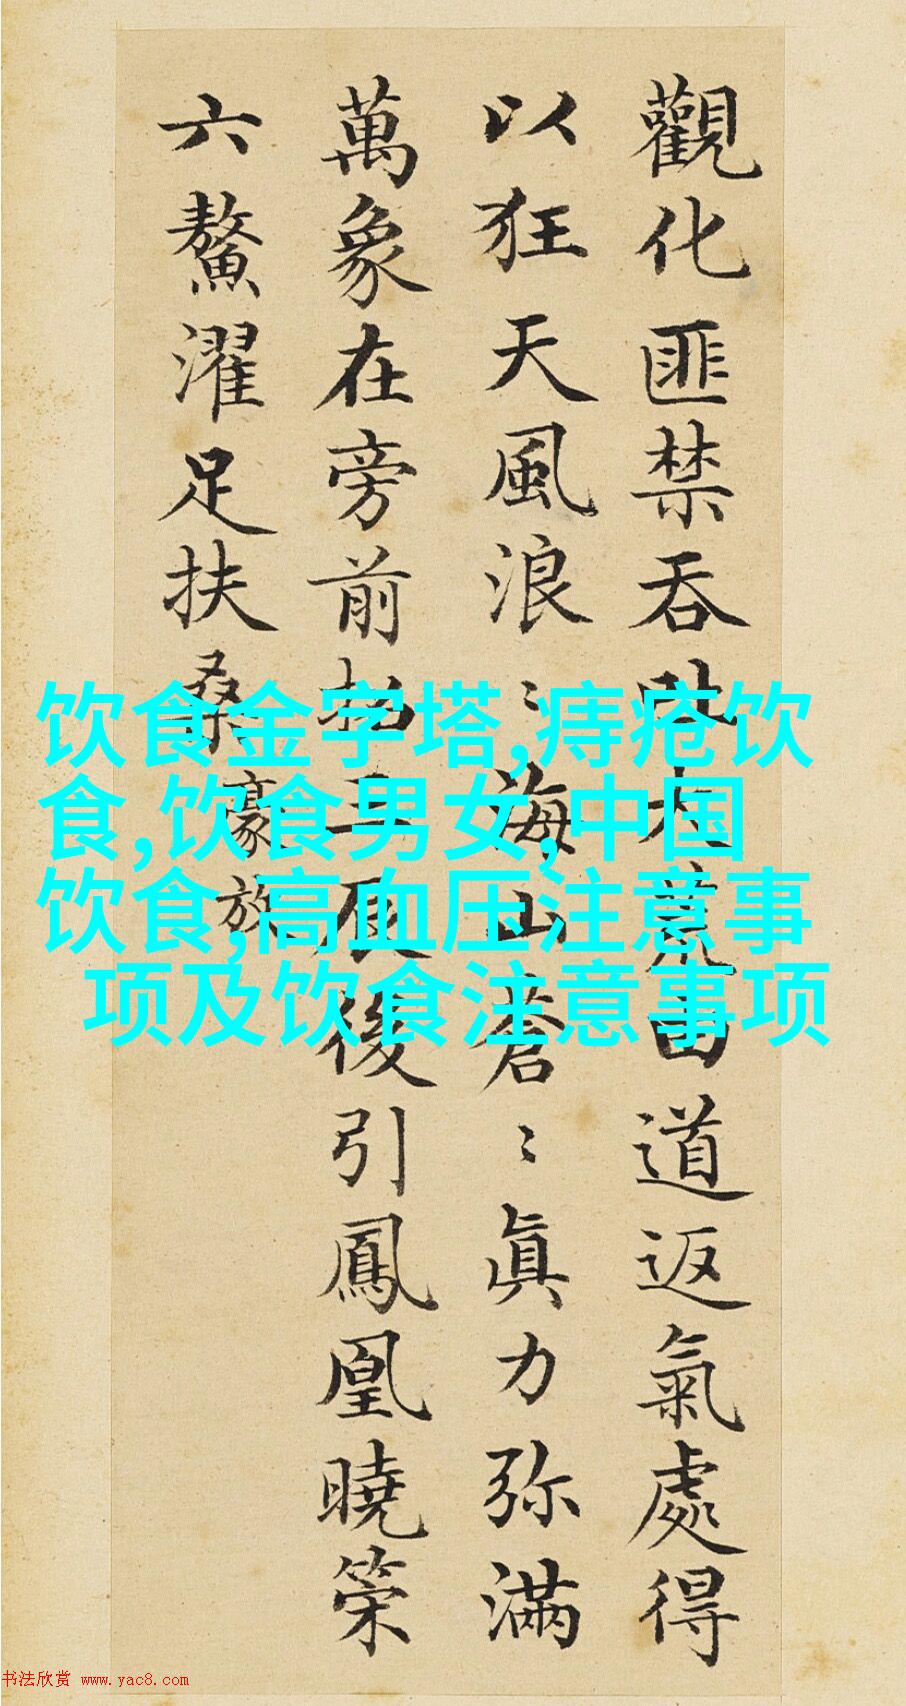 觀化匪禁吞吐大荒由道返氣處得
以狂天風浪〻海山蒼〻眞力弥滿
萬象在旁前招三辰後引鳳凰曉策
六鰲濯足扶桑
豪放
饮食金字塔,痔疮饮
食,饮食男女,中国
饮食,高血压注意事
项及饮食注意事项
书法欣赏 www.yac8.com